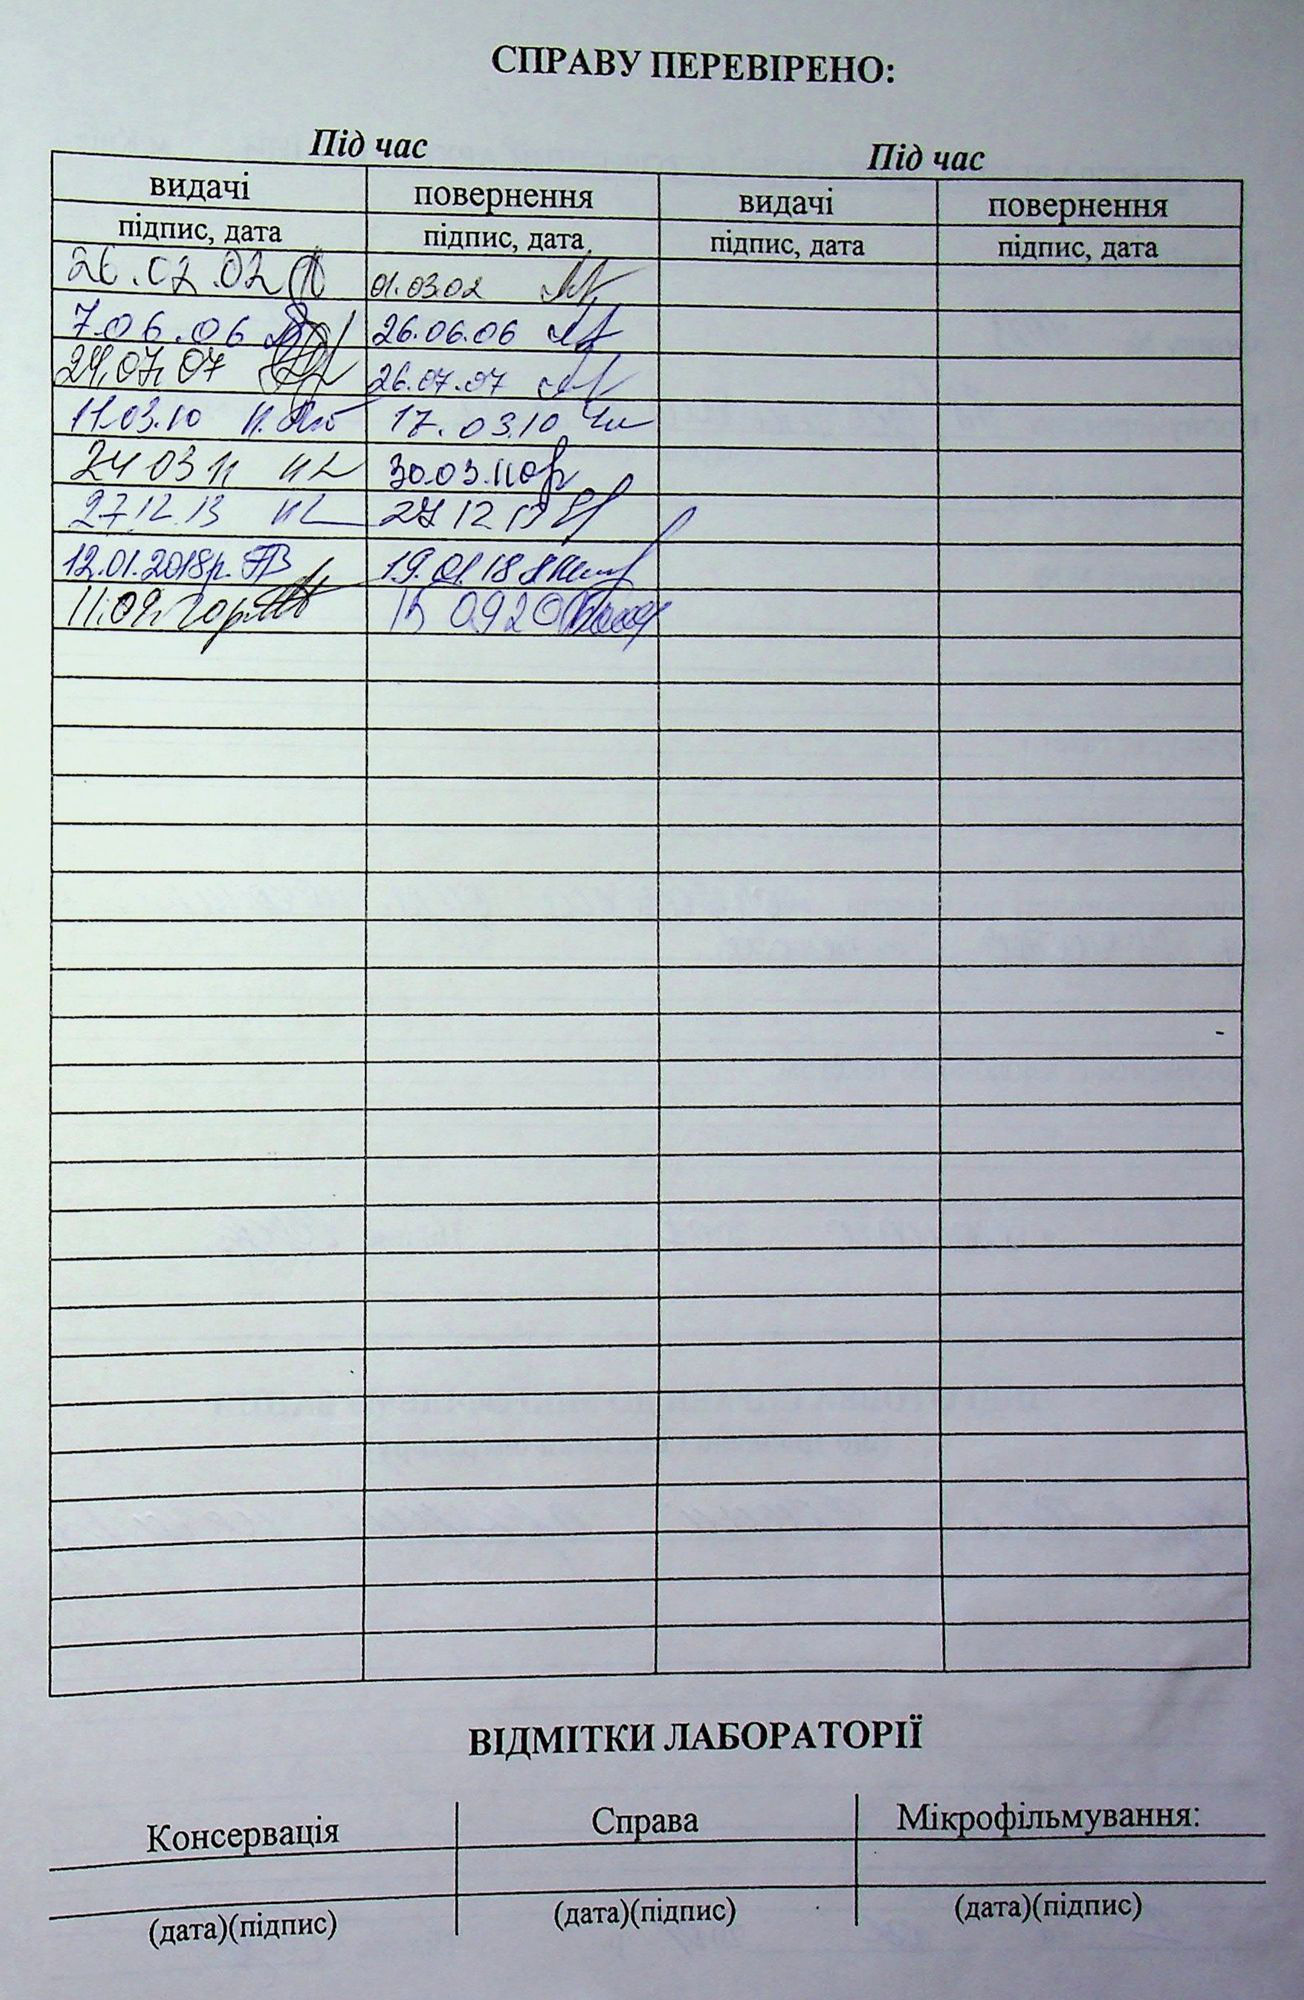 СПРАВУ ПЕРЕВІРЕНО:
Під час Під час
видачі повернення видачі повернення
підпис, дата підпис, дата підпис, дата підпис, дата
26.02.02 01.03.02
7.06.06 26.06.06
24.07.07 26.07.07
11.03.10 17.03.10
24 03 11 30.03.11
27.12.13 27 12 13
12.01.2018р. 19.01.18
11.09. 09 20
ВІДМІТКИ ЛАБОРАТОРІЇ
Консервація Справа Мікрофільмування:
(дата)(підпис) (дата)(підпис) (дата)(підпис)